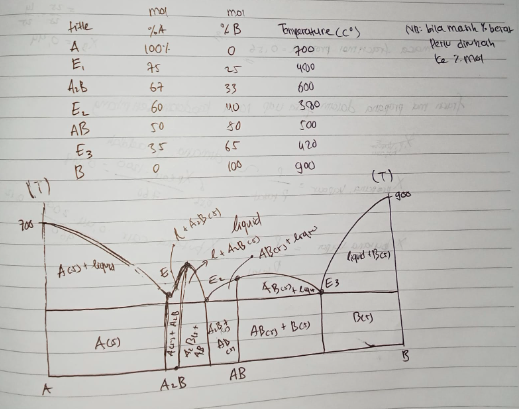 mol mol
title %A %B Temperature (C°)
A 100% 0 700
E₁ 75 25 480
A₂B 67 33 600
E₂ 60 40 380
AB 50 50 500
E₃ 35 65 420
B 0 100 900
NB: bila masih % berat
Perlu dirubah
ke % mol
(T) (T)
l + A₂B(s) liquid
700 900
l + A₂B(s)
AB(s) + liquid
A(s) + liquid E E₂ AB(s) + liquid E3 liquid + B(s)
A(s) A(s) + A₂B A₂B(s) + AB A₂B + AB (s) AB(s) + B(s) B(s)
A A₂B AB B